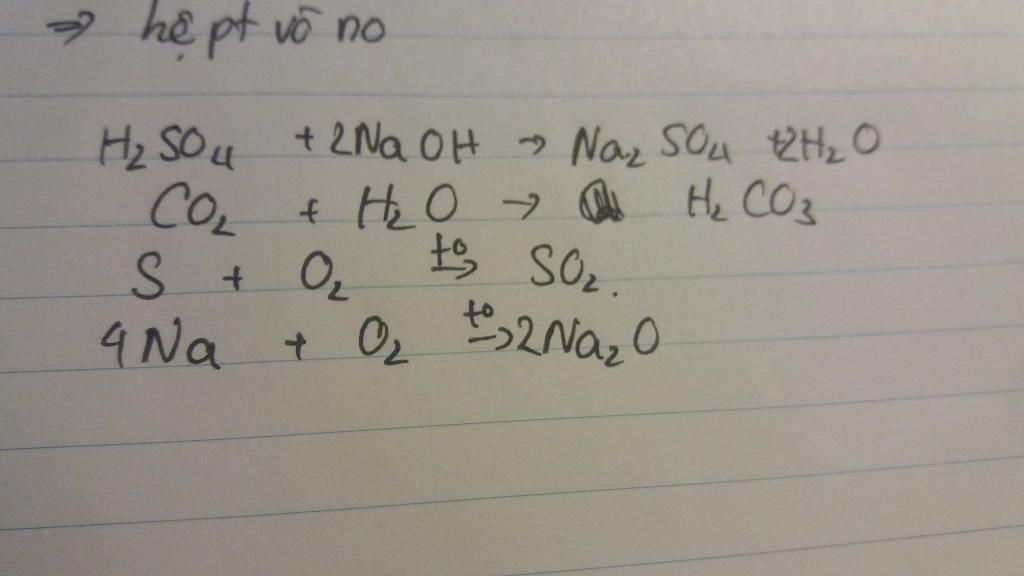 ⇒ hệ pt vô no
H₂SO₄ + 2NaOH → Na₂SO₄ + 2H₂O
CO₂ + H₂O → H₂CO₃
S + O₂ t°→ SO₂.
4Na + O₂ t°→ 2Na₂O